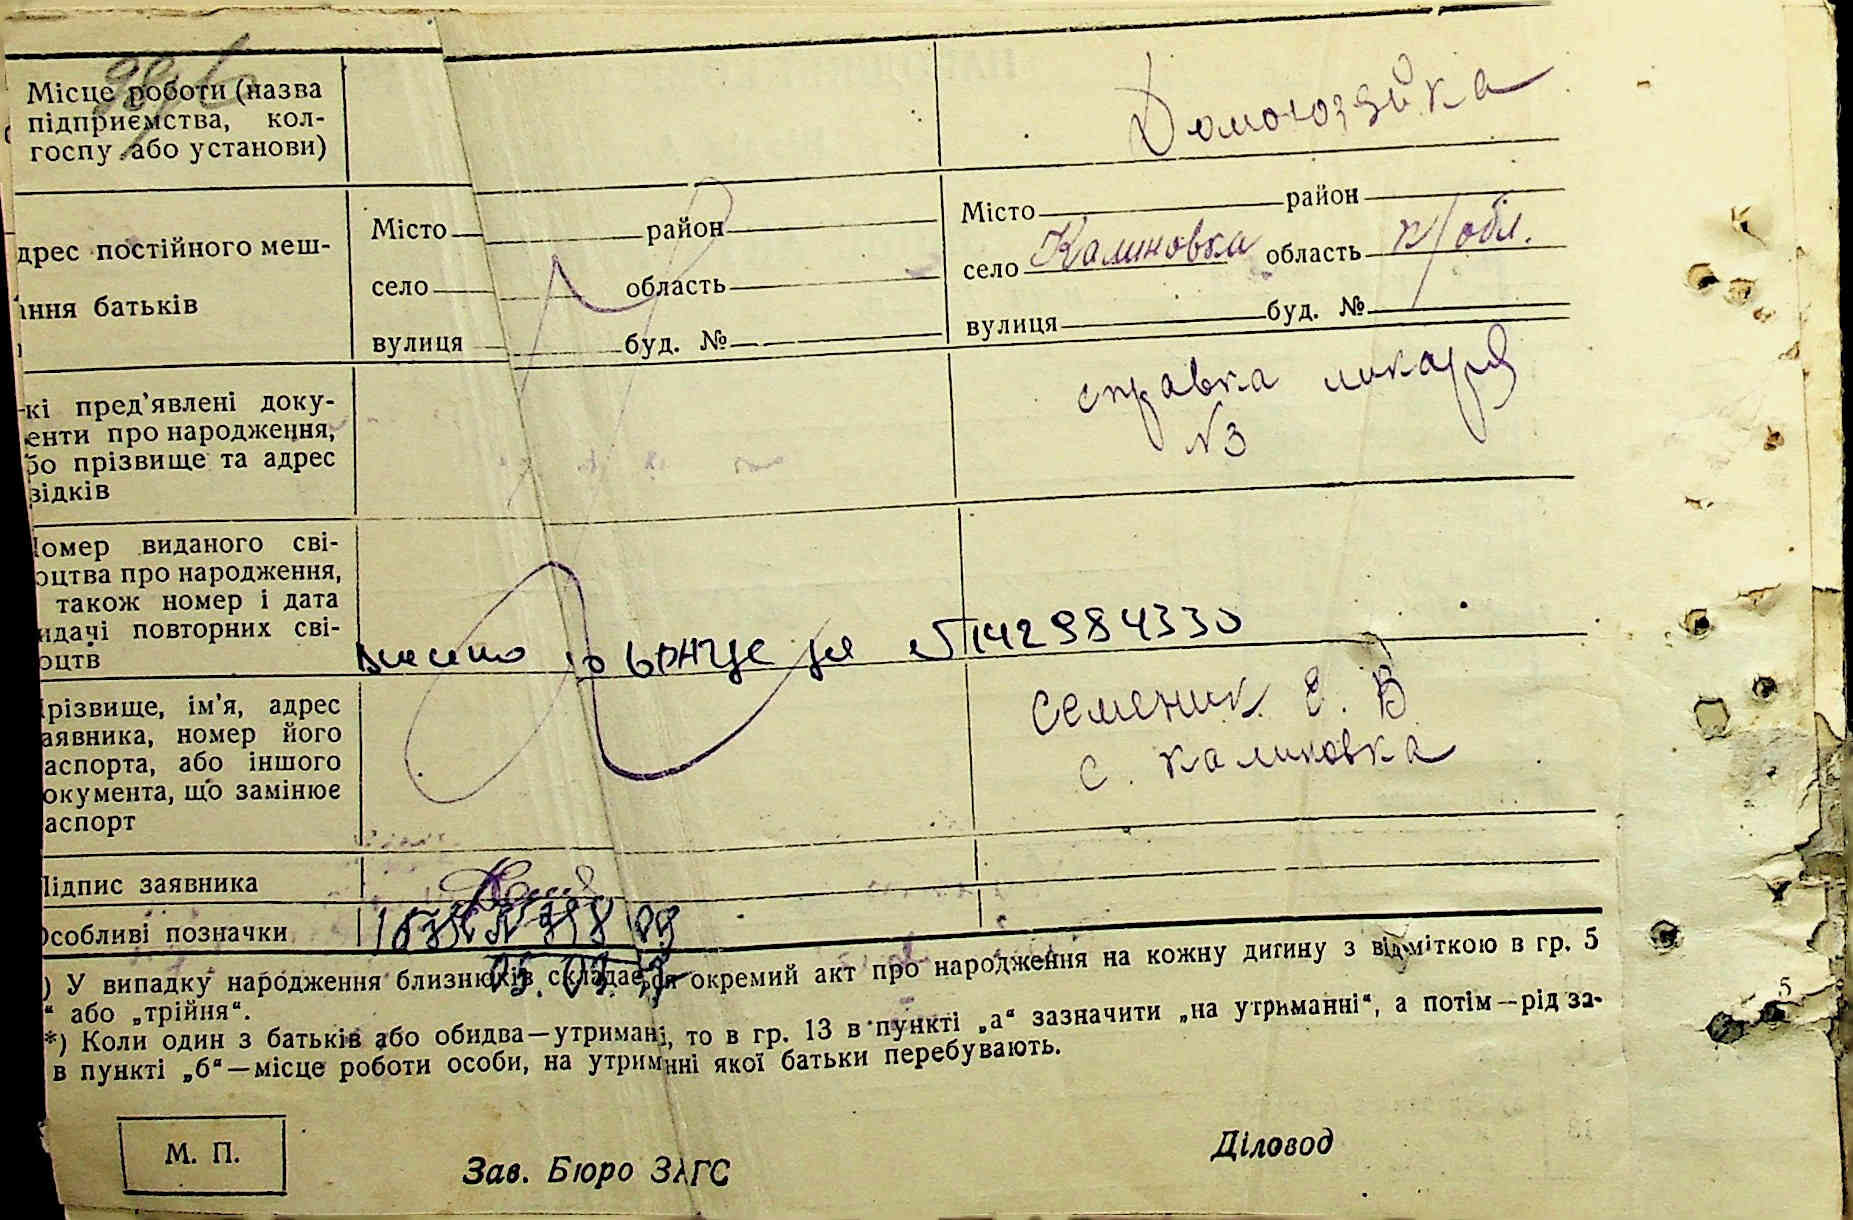 Місце роботи (назва
підприємства, кол-
госпу або установи)
Домохозяйка
дрес постійного меш-
ння батьків
Місто район
село область
вулиця буд. №
Місто район
село Калиновка область к/обл.
вулиця буд. №
кі пред'явлені доку-
енти про народження,
бо прізвище та адрес
відків
справка likаря
N3
омер виданого сві-
оцтва про народження,
також номер і дата
идачі повторних сві-
оцтв
внесено до ДРАЦС за №142984330
різвище, ім'я, адрес
аявника, номер його
аспорта, або іншого
окумента, що замінює
аспорт
Семеник Є. В
с. Калиновка
ідпис заявника
собливі позначки
) У випадку народження близнюків складається окремий акт про народження на кожну дитину з відміткою в гр. 5
“ або „трійня“.
*) Коли один з батьків або обидва—утримані, то в гр. 13 в пункті „а“ зазначити „на утриманні“, а потім—рід за-
в пункті „б“—місце роботи особи, на утриманні якої батьки перебувають.
5
М. П.
Зав. Бюро ЗАГС
Діловод